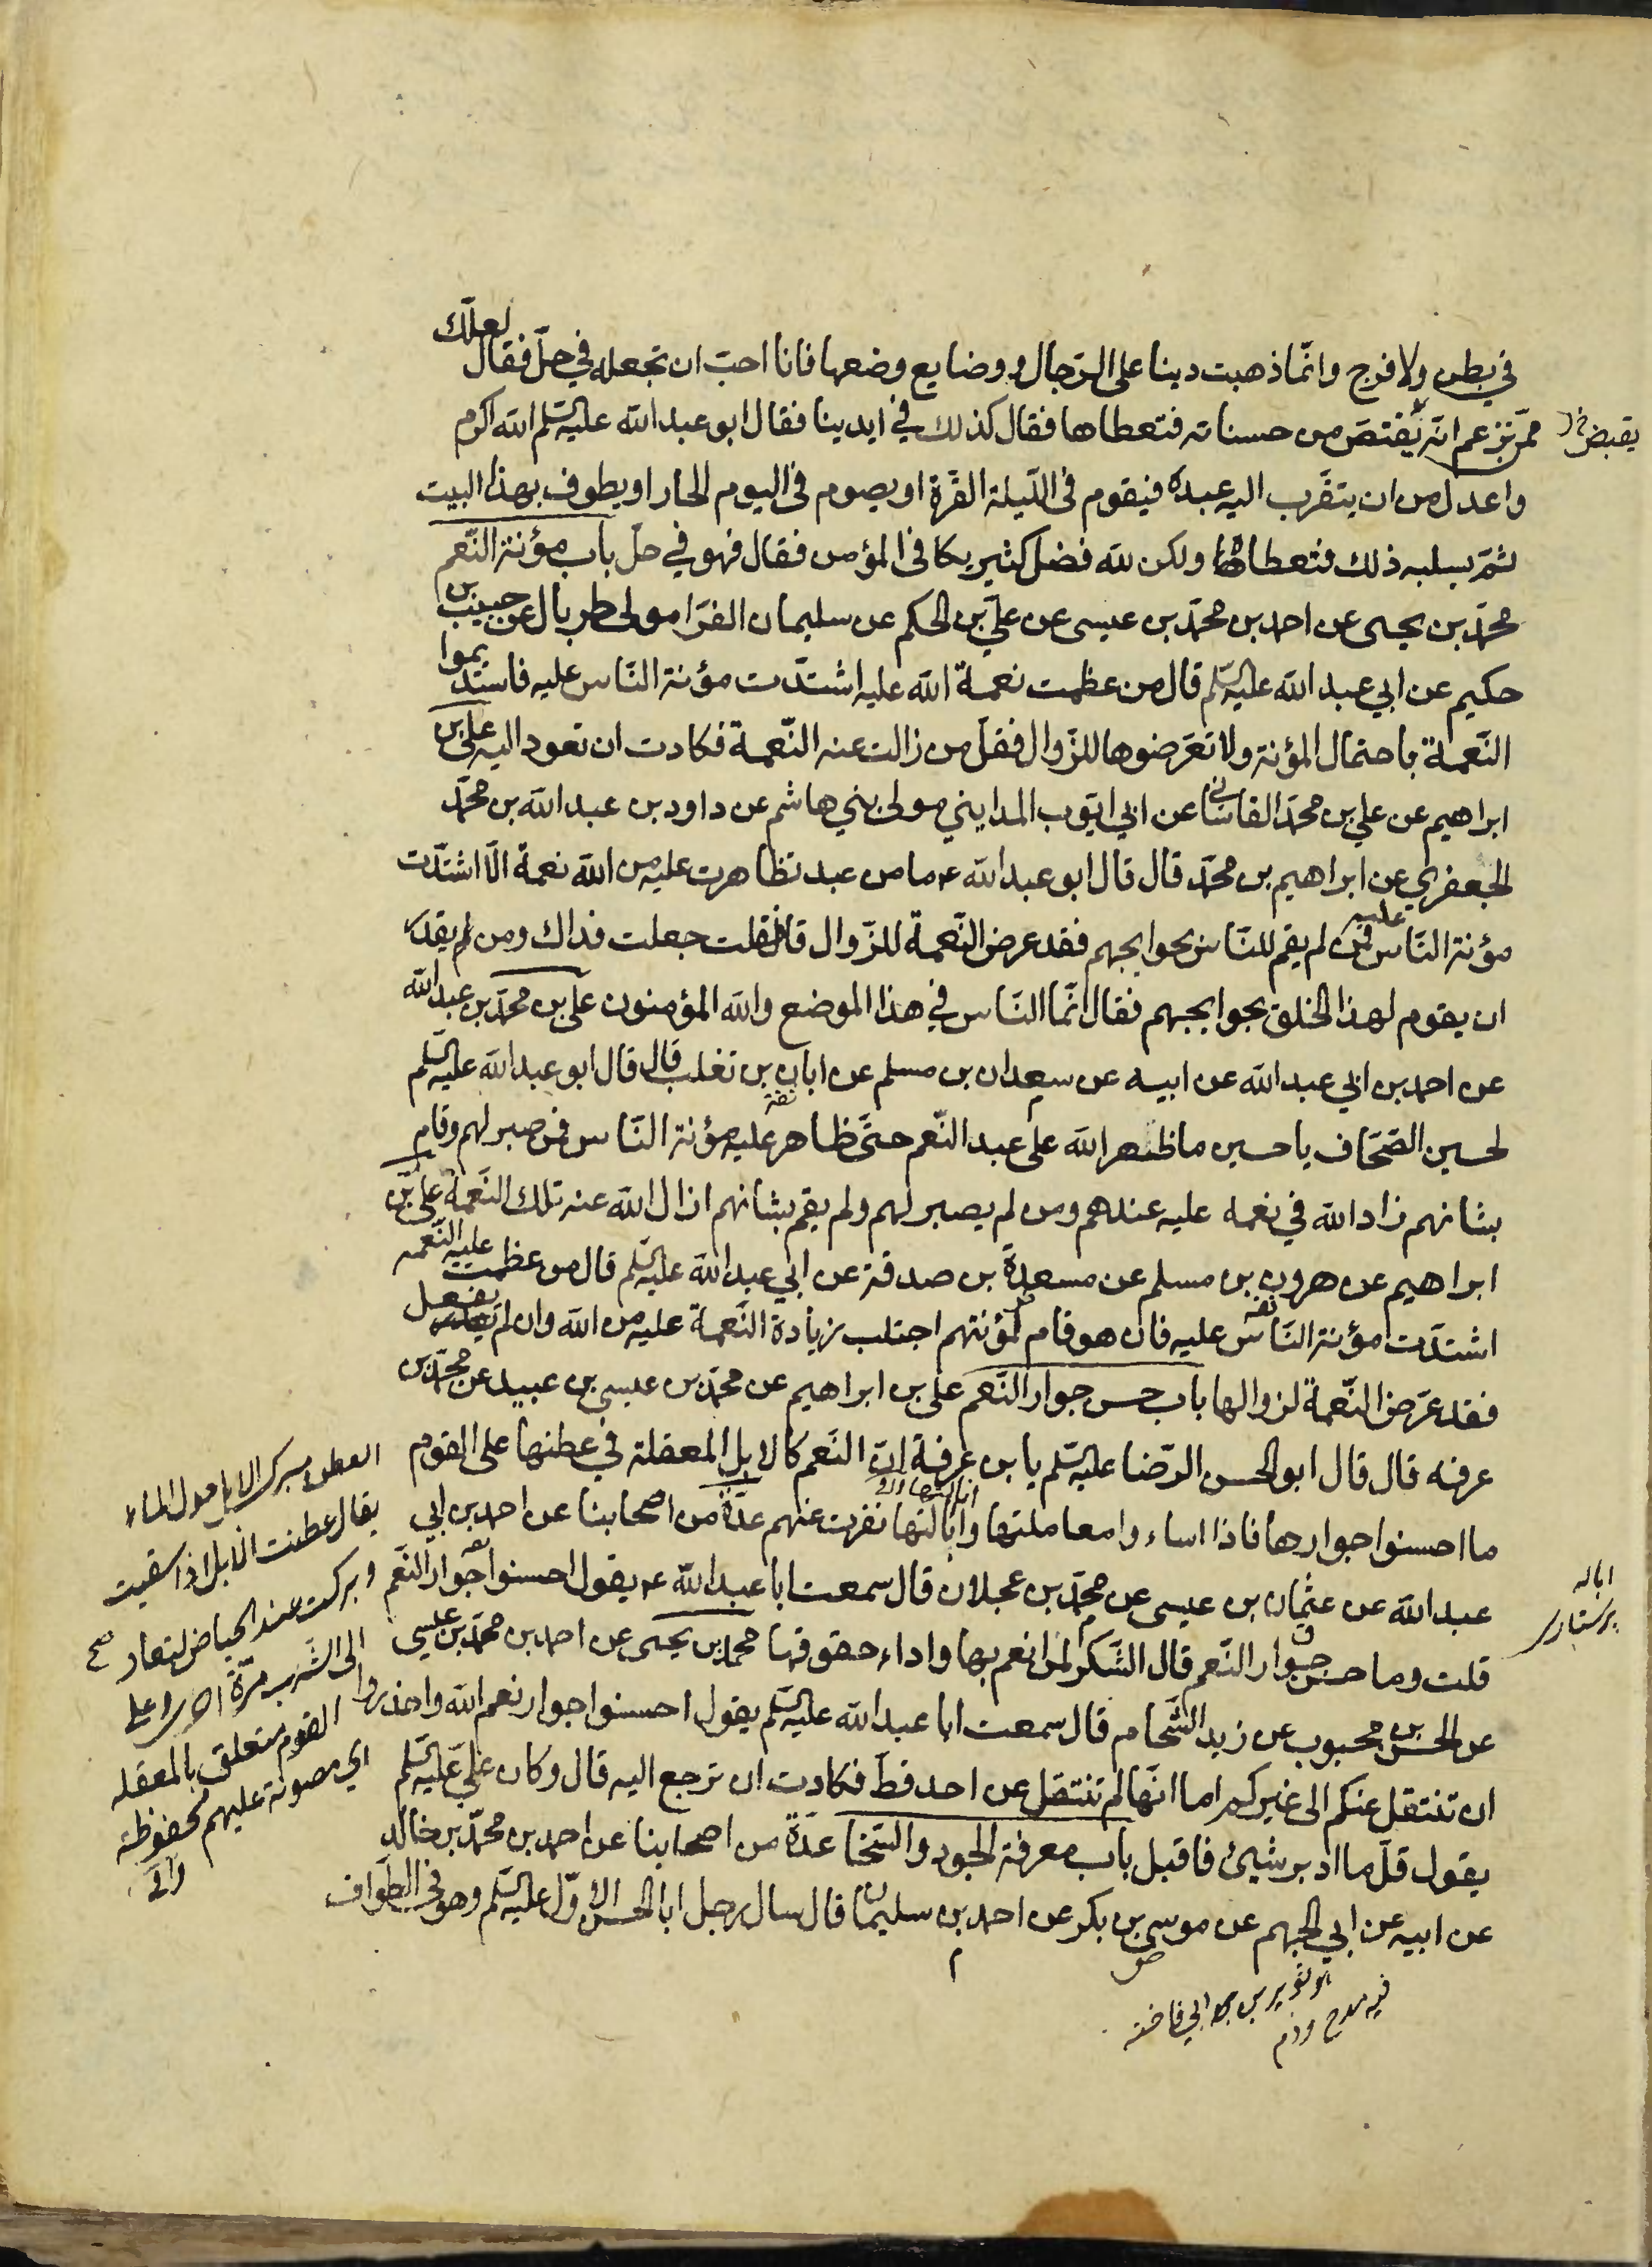 في بطن ولا فرج وانّما ذهبت دينا على الرّجال ووضايع وضعها فانا احبّ ان تجعله في حلّ فقال لعلّك
ممّن تزعم انّه يقتصّ من حسناته فتعطاها فقال كذلك في ايدينا فقال ابو عبد الله عليه السّلم الله اكرم
يقبض
واعدل من ان يتقرّب اليه عبده فيقوم في اللّيلة القرّة او يصوم في اليوم الحار او يطوف بهذا البيت
ثمّ يسلبه ذلك فتعطاها ولكن لله فضل كثير يكافي المؤمن فقال فهو في حلّ باب مؤنة النّعم
محمّد بن يحيى عن احمد بن محمّد بن عيسى عن عليّ بن الحكم عن سليمان الفرّا مولى طربال عن حبيب بن
حكيم عن ابي عبد الله عليه السّلم قال من عظمت نعمة الله عليه اشتدّت مؤنة النّاس عليه فاستديموا
النّعمة باحتمال المؤنة ولا تعرّضوها للزّوال فقلّ من زالت عنه النّعمة فكادت ان تعود اليه علي بن
ابراهيم عن علي بن محمّد القاساني عن ابي ايّوب المدايني مولى بني هاشم عن داود بن عبد الله بن محمّد
الجعفري عن ابراهيم بن محمّد قال قال ابو عبد الله ع ما من عبد تظاهرت عليه من الله نعمة الّا اشتدّت
مؤنة النّاس عليه فمن لم يقم للنّاس بحوايجهم فقد عرض النّعمة للزّوال قال فقلت جعلت فداك ومن يقدر
ان يقوم لهذا الخلق بحوايجهم فقال انّما النّاس في هذا الموضع والله المؤمنون علي بن محمّد بن عبد الله
عن احمد بن ابي عبد الله عن ابيه عن سعدان بن مسلم عن ابان بن تغلب قال قال ابو عبد الله عليه السّلم
لحسين الصّحّاف يا حسين ما ظهر الله على عبد النّعم حتّى ظاهر عليه مؤنة النّاس فمن صبر لهم وقام
بشانهم زاد الله في نعمه عليه عندهم ومن لم يصبر لهم ولم يقم بشانهم ازال الله عنه تلك النّعمة علي بن
ابراهيم عن هرون بن مسلم عن مسعدة بن صدقة عن ابي عبد الله عليه السّلم قال من عظمت عليه النّعمه
اشتدّت مؤنة النّاس عليه فان هو قام بمؤنتهم اجتلب زيادة النّعمة عليه من الله وان لم يفعل
فقد عرّض النّعمة لزوالها باب حسن جوار النّعم علي بن ابراهيم عن محمّد بن عيسى بن عبيد عن محمّد بن
عرفه قال قال ابو الحسن الرّضا عليه السّلم يا بن عرفة انّ النّعم كالابل المعقلة في عطنها على القوم
ما احسنوا جوارها فاذا اساءوا معاملتها وايالتها نفرت عنهم عدّة من اصحابنا عن احمد بن ابي
عبد الله عن عثمان بن عيسى عن محمّد بن عجلان قال سمعت ابا عبد الله ع يقول احسنوا جوار النّعم
قلت وما حسن جوار النّعم قال الشّكر لمن انعم بها واداء حقوقها محمد بن يحيى عن احمد بن محمّد بن عيسى
عن الحسن بن محبوب عن زيد الشّحام قال سمعت ابا عبد الله عليه السّلم يقول احسنوا جوار نعم الله واحذروا
ان تنتقل عنكم الى غيركم اما انّها لم تنتقل عن احد قطّ فكادت ان ترجع اليه قال وكان علي عليه السّلم
يقول قلّ ما ادبر شيئ فاقبل باب معرفة الجود والسّخا عدّة من اصحابنا عن احمد بن محمّد بن خالد
عن ابيه عن ابي الجهم عن موسى بن بكر عن احمد بن سليمان قال سال رجل ابا الحسن الاوّل عليه السّلم وهو في الطّواف
العطن مبرك الابل حول الماء
يقال عطنت الابل اذا سقيت
وبركت عند الحياض لتعاد
الى الشرب مرّة اخرى على
القوم متعلق بالمعقله
اي مصونة عليهم محفوظة
اياله
پرستارى
فيه مدح وذم